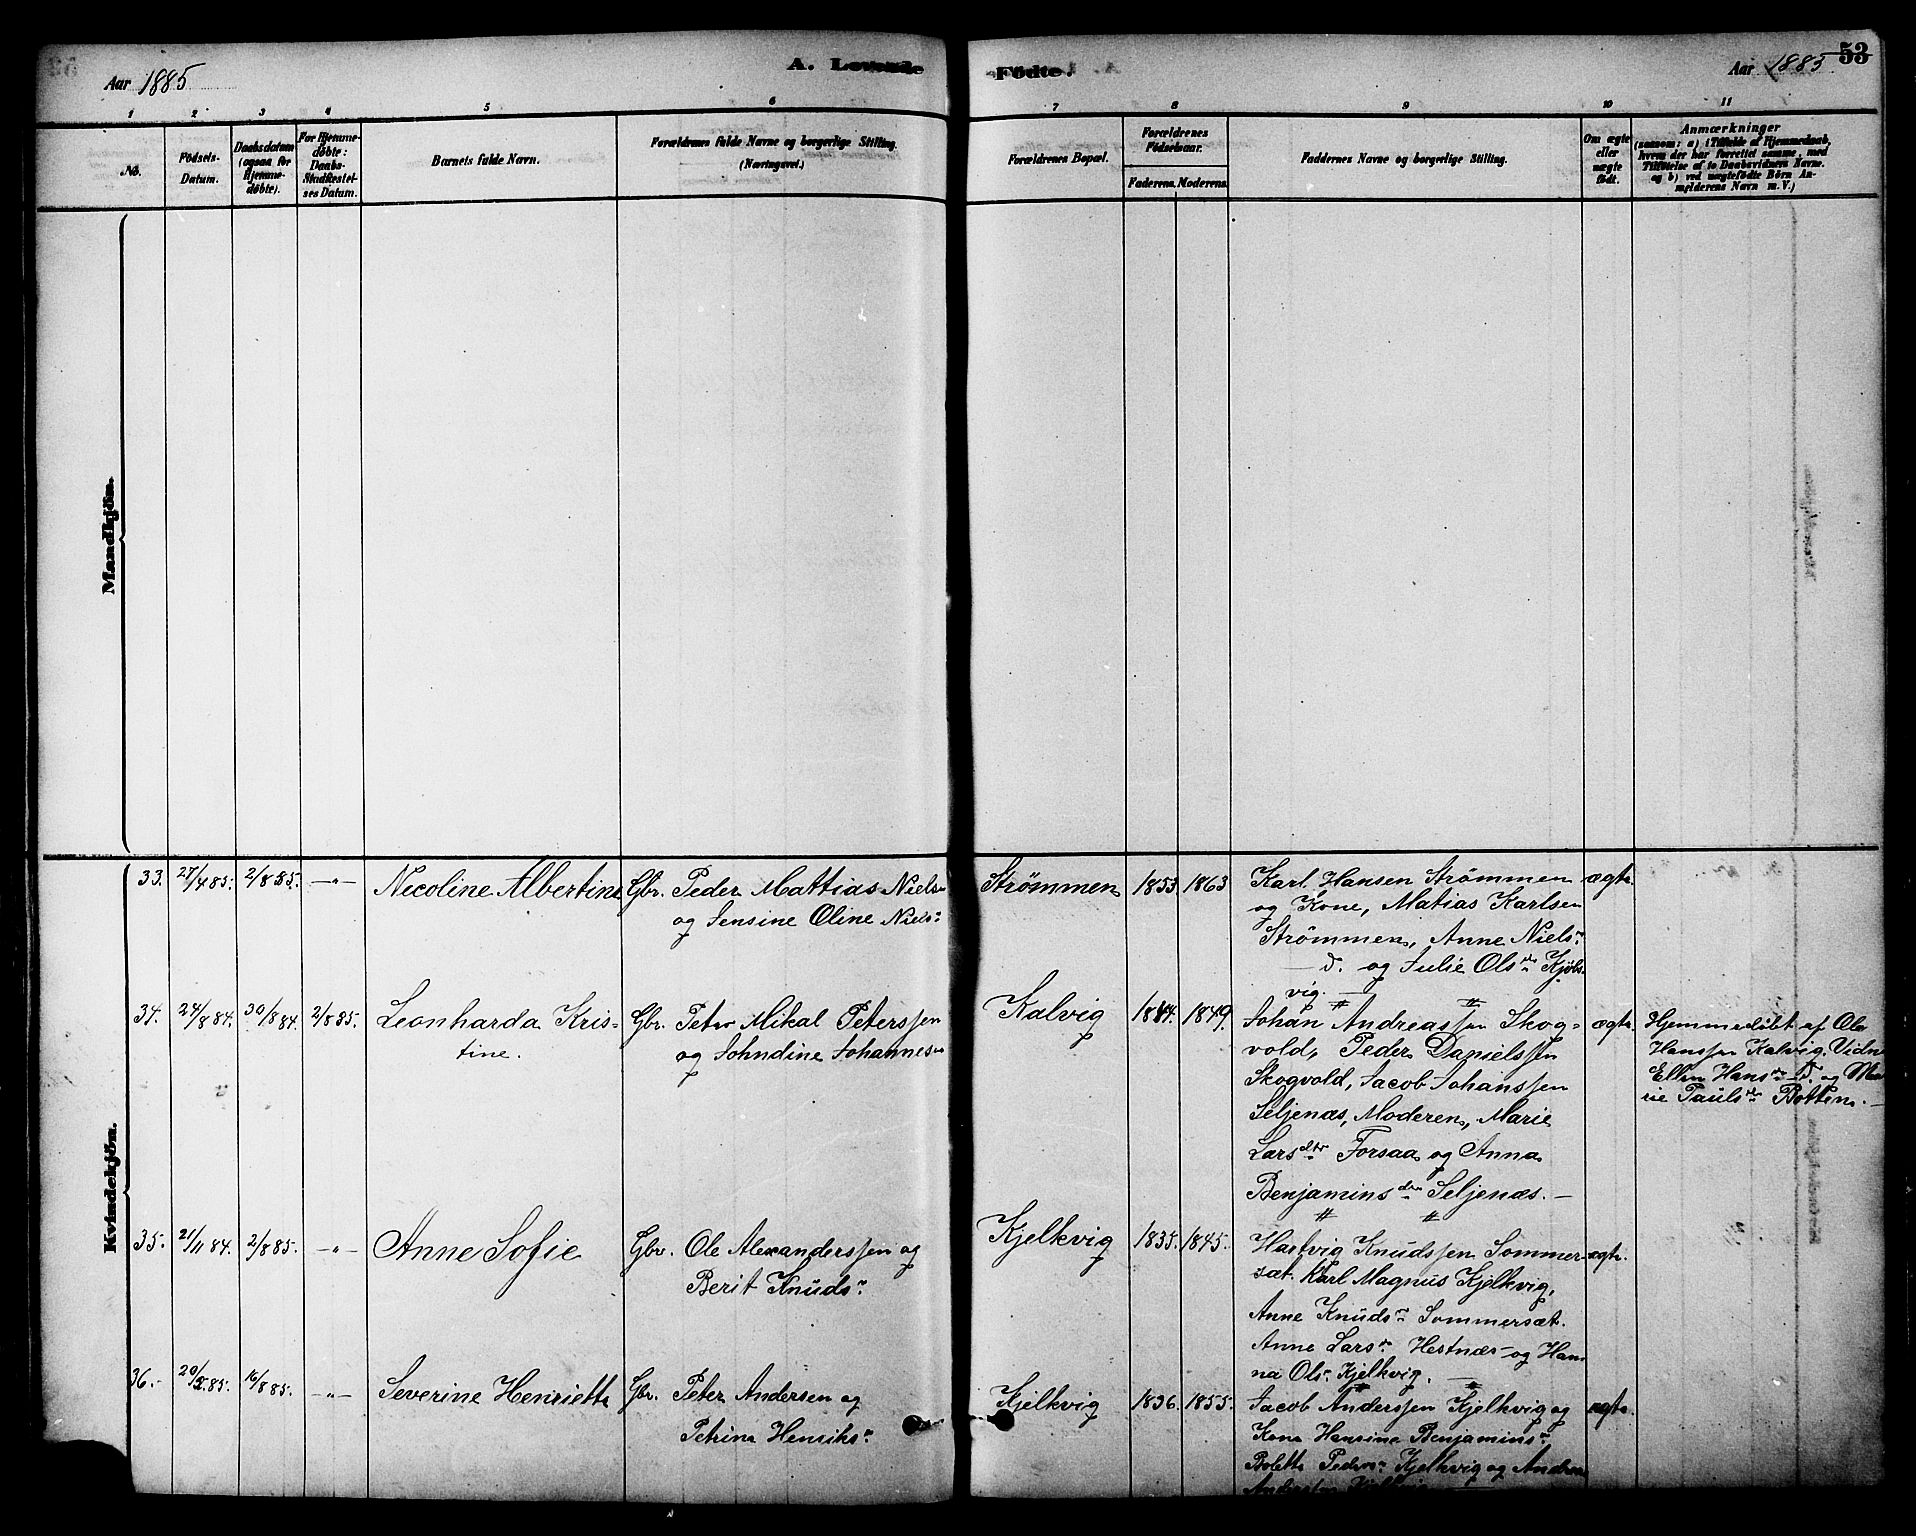 53
Aar 1885
A. Levende
Födte.
Aar 1885
1 2 3 4 5 6 7 8 9 10 11
No.
Födsels-
Datum.
Daabsdatum
(ogsaa for
Hjemme-
döbte).
For Hjemme-
döbte:
Daabs-
Stadfæstel-
ses Datum.
Barnets fulde Navn.
Forældrenes fulde Navne og borgerlige Stilling.
(Næringsvei.)
Forældrenes Bopæl.
Forældrenes
Födselsaar.
Faderens. Moderens.
Faddernes Navne og borgerlige Stilling.
Om ægte
eller
uægte
födt.
Anmærkninger
(saasom: a) i Tilfælde af Hjemmedaab,
hvem der har forrettet samme, med
Tilföielse af to Daabsvidners Navne.
og b) ved uægtefödte Börn An-
melderens Navn m.V.)
Mandkjön.
Kvindekjön.
33. 27/4 85. 2/8 85. —"— Necoline Albertine Gbr. Peder Mattias Niels
og Jensine Oline Niels
Strømmen 1853 1863 Karl Hansen Strømmen ægte
og Kone, Matias Karlsen
Strømmen, Anne Niels
— d. og Julie Ols dr Kjöls
vig. —
34. 24/8 84. 30/8 84. 2/8 85. Leonharda Kris-
tine.
Gbr. Peter Mikal Peterssen
og Johndine Johannes
Kalvig 1844. 1849. Johan Andreassen Skog- ægte
vold, Peder Danielssen
Skogvold, Jacob Johanssen
Seljenæs, Moderen, Marie
Lars dtr Forsaa og Anna
Benjamins dr Seljenæs. —
Hjemmedöbt af Ole
Hanssen Kalvig. Vidn
Ellen Hans d. og Ma
rie Pauls dr Botten. —
35. 21/11 84. 2/8 85. —"— Anne Sofie Gbr. Ole Alexanderssen og
Berit Knuds
Kjelkvig 1835. 1845. Hartvig Knudssen Sommer- ægte.
sæt. Karl Magnus Kjelkvig,
Anne Knuds Sommersæt.
Anne Lars Hestnæs og Han
na Ols Kjelkvig. —
36. 20/2 85. 16/8 85. —"— Severine Henriette Gbr. Peter Andersen og
Petrine Henriks
Kjelkvig 1836. 1855. Jacob Anderssen Kjelkvig og ægte.
Kone Hansine Benjamins
Bolette Peders Kjelkvig og Andreas